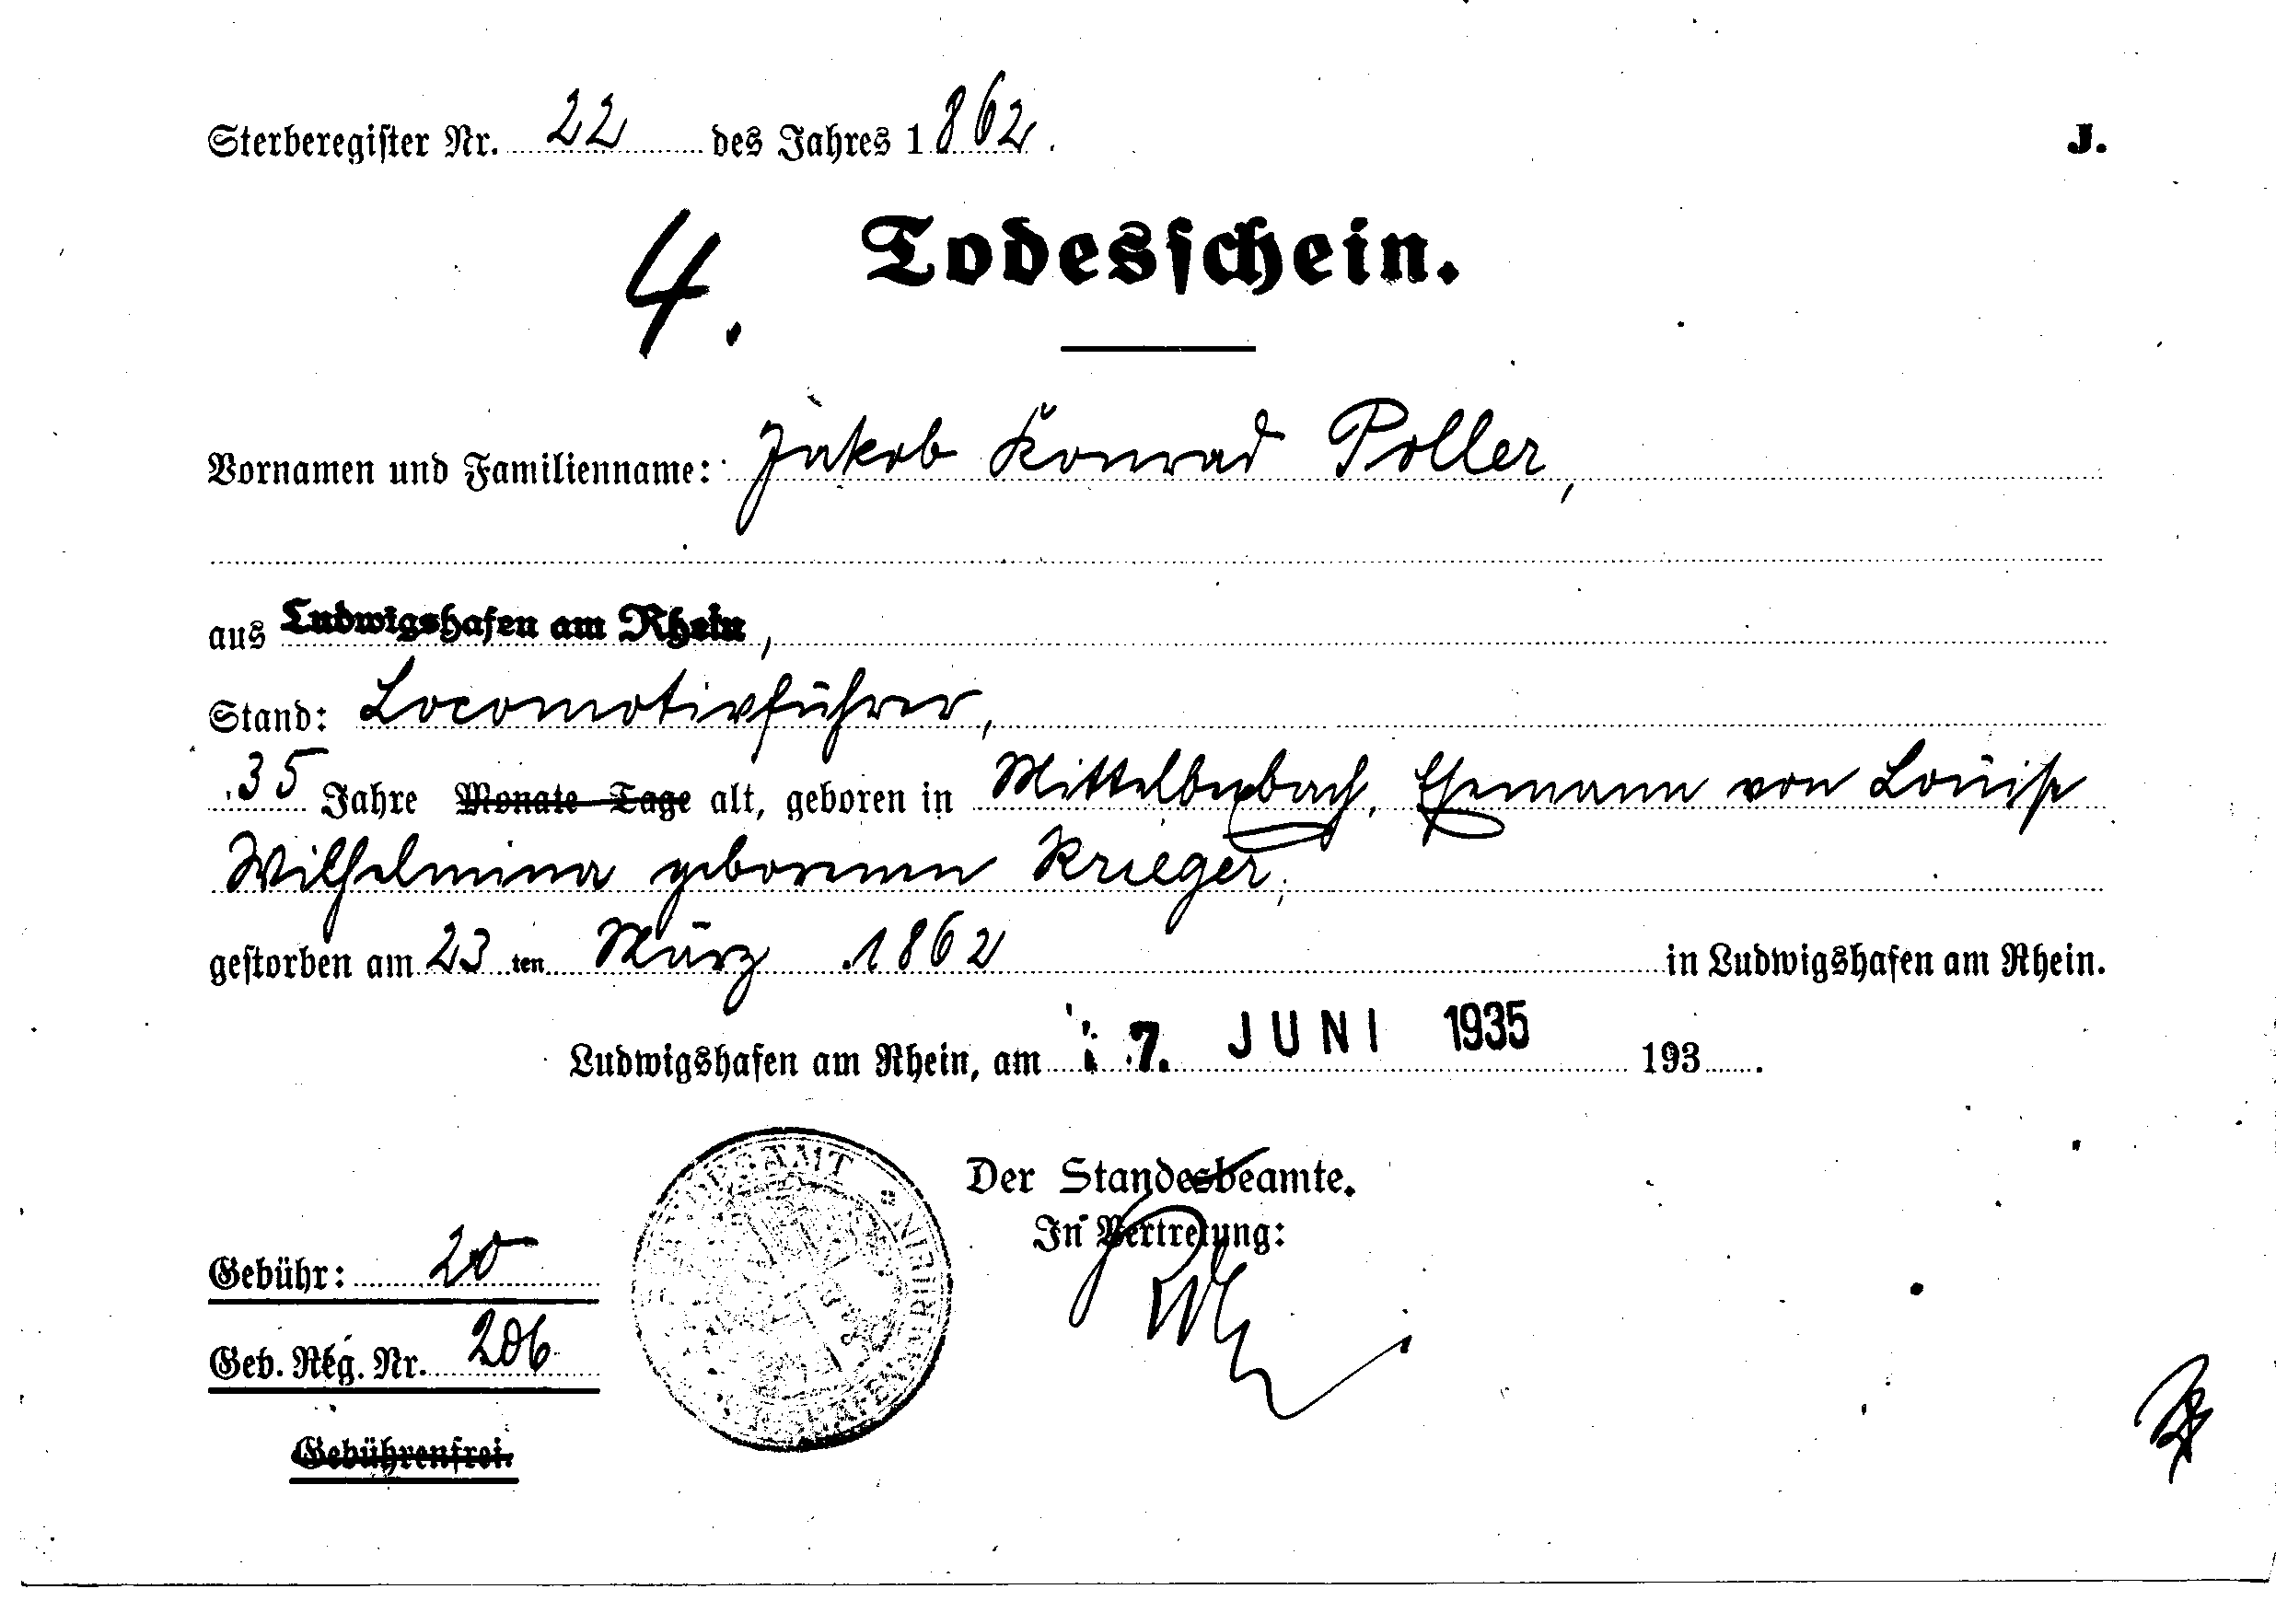 Sterberegister Nr. 22 des Jahres 1862. J.
4. Todesschein.
Vornamen und Familienname: Jakob Konrad Poller,
aus Ludwigshafen am Rhein,
Stand: Locomotivführer,
35 Jahre Monate Tage alt, geboren in Mittelbexbach, Ehemann von Louise
Wilhelmina geborenen Krieger,
gestorben am 23 ten März 1862 in Ludwigshafen am Rhein.
Ludwigshafen am Rhein, am 7. JUNI 1935 193 .
Der Standesbeamte.
In Vertretung:
Gebühr: 20
Geb. Reg. Nr. 206
Gebührenfrei.